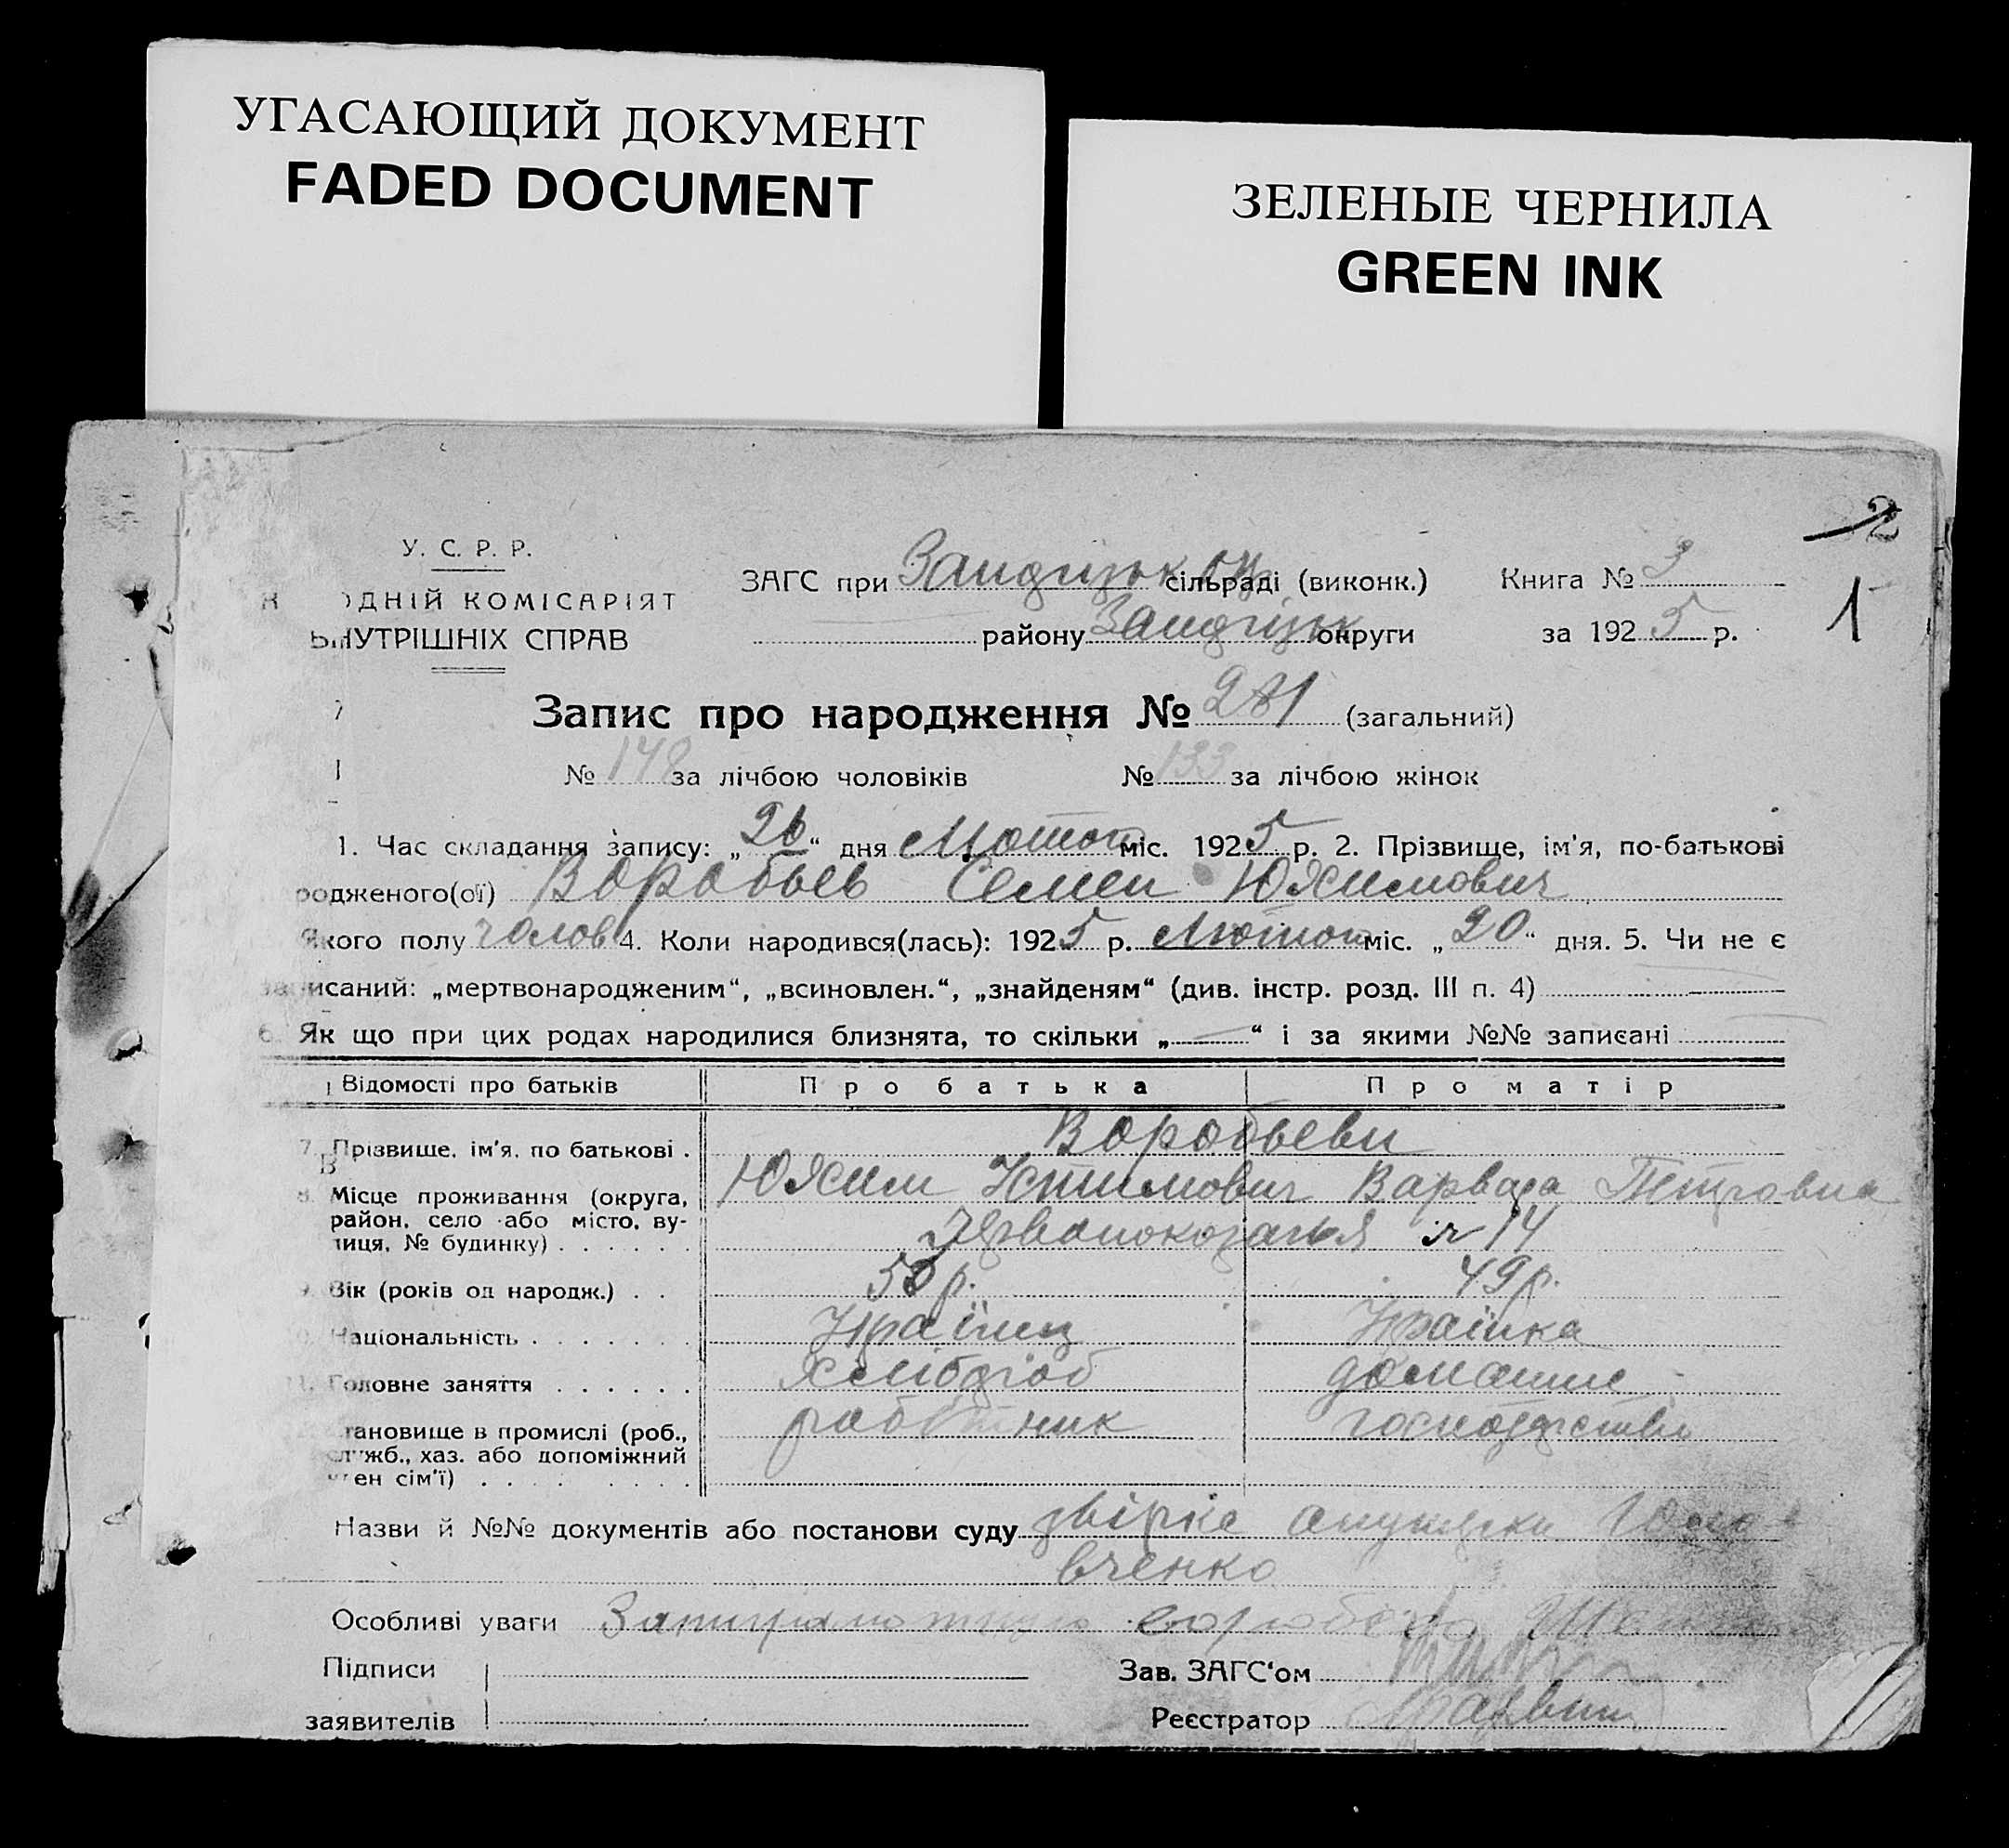 УГАСАЮЩИЙ ДОКУМЕНТ
FADED DOCUMENT
ЗЕЛЕНЫЕ ЧЕРНИЛА
GREEN INK
2
1
У. С. Р. Р.
ОДНІЙ КОМІСАРІЯТ
ВНУТРІШНІХ СПРАВ
ЗАГС при сільраді (виконк.) Книга № 3
району округи за 1925 р.
Запис про народження № 281 (загальний)
№ 148 за лічбою чоловіків № 133 за лічбою жінок
1. Час складання запису: „26“ дня Лютого міс. 1925 р. 2. Прізвище, ім'я, по-батькові
родженого(ої) Воробьев Семен Юхимович
Якого полу чолов 4. Коли народився(лась): 1925 р. Лютого міс. „20“ дня. 5. Чи не є
записаний: „мертвонародженим“, „всиновлен.“, „знайденям“ (див. інстр. розд. III п. 4)
6. Як що при цих родах народилися близнята, то скільки „ “ і за якими №№ записані
Відомості про батьків Про батька Про матір
7. Прізвище, ім'я, по батькові . Воробьеви
Юхим Устимович Варвара Петровна
8. Місце проживання (округа,
район, село або місто, ву-
лиця, № будинку) . . . . . . 14
9. Вік (років од народж.) . . 50 р. 49 р.
10. Національність . . . . . . . Українець Українка
11. Головне заняття . . . . . . Хлібороб домашне
становище в промислі (роб., робітник господарство
служб., хаз. або допоміжний
член сім'ї) . . . . . . .
Назви й №№ документів або постанови суду
вченко
Особливі уваги
Підписи Зав. ЗАГС'ом
заявителів Реєстратор